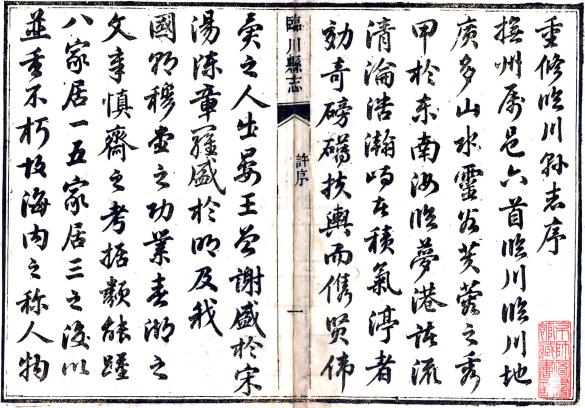 重修臨川縣志序
撫州屬邑六首臨川臨川地
廣多山水靈谷芙蓉之秀
甲於東南汝臨夢港諸流
清淪浩瀚峙者積氣渟者
効奇磅礴扶輿而儁賢偉
臨川縣志
許序
一
之人出晏王曾謝盛於宋
湯陳章羅盛於明及我
國朝穆堂之功業春湖之
文章慎齋之考據類能躋
八家居一五家居三之後以
並垂不朽故海内之稱人物
京師圖書
館藏書